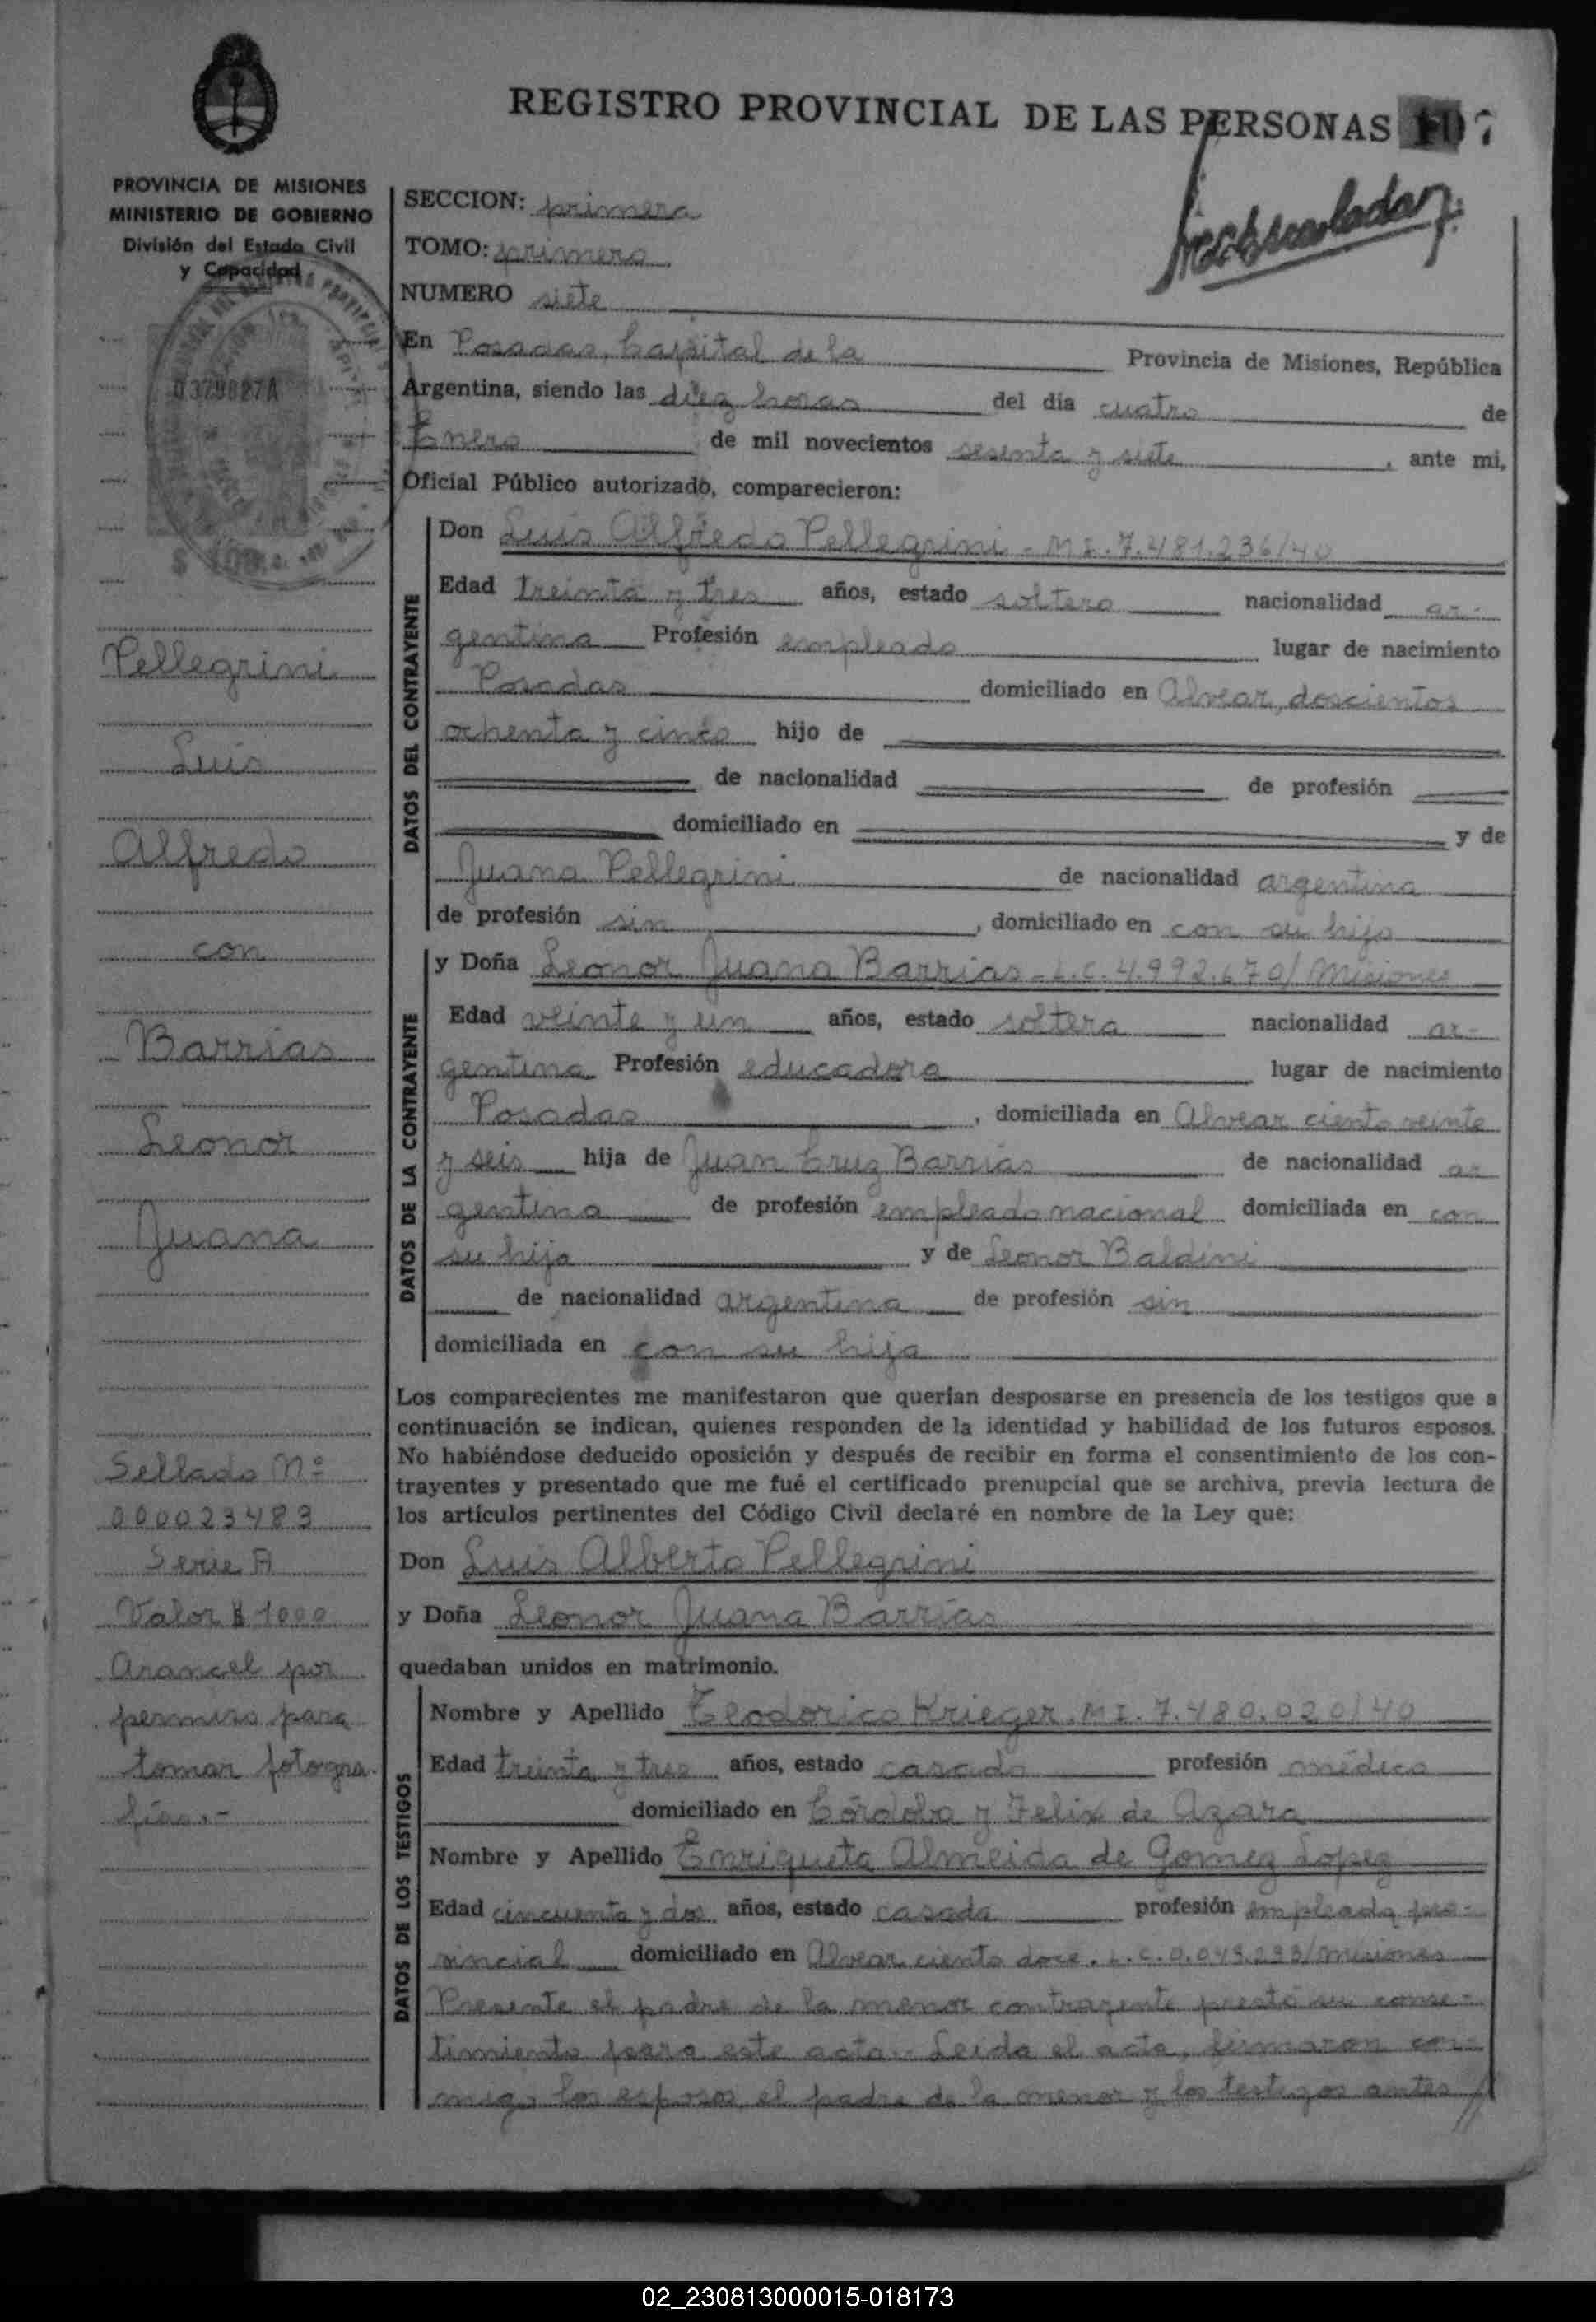 REGISTRO PROVINCIAL DE LAS PERSONAS
PROVINCIA DE MISIONES
MINISTERIO DE GOBIERNO
División del Estado Civil
y Capacidad
0379087A
Pellegrini
Luis
Alfredo
con
Barrias
Leonor
Juana
Sellado Nº
000023483
Serie A
Valor $ 1000
Arancel por
permiso para
tomar fotogra-
fías.-
SECCION: primera
TOMO: primero
NUMERO siete
En Posadas, Capital de la Provincia de Misiones, República
Argentina, siendo las diez horas del día cuatro de
Enero de mil novecientos sesenta y siete, ante mi,
Oficial Público autorizado, comparecieron:
DATOS DEL CONTRAYENTE
Don Luis Alfredo Pellegrini - M I. 7.481.236/40
Edad treinta y tres años, estado soltero nacionalidad ar-
gentina Profesión empleado lugar de nacimiento
Posadas domiciliado en Alvear, doscientos
ochenta y cinco hijo de
de nacionalidad de profesión
domiciliado en y de
Juana Pellegrini de nacionalidad argentina
de profesión sin, domiciliado en con su hijo
DATOS DE LA CONTRAYENTE
y Doña Leonor Juana Barrias - L.C. 4.992.670/Misiones
Edad veinte y un años, estado soltera nacionalidad ar-
gentina Profesión educadora lugar de nacimiento
Posadas, domiciliada en Alvear ciento veinte
y seis hija de Juan Cruz Barrias de nacionalidad ar
gentina de profesión empleado nacional domiciliada en con
su hija y de Leonor Baldini
de nacionalidad argentina de profesión sin
domiciliada en con su hija
Los comparecientes me manifestaron que querían desposarse en presencia de los testigos que a
continuación se indican, quienes responden de la identidad y habilidad de los futuros esposos.
No habiéndose deducido oposición y después de recibir en forma el consentimiento de los con-
trayentes y presentado que me fué el certificado prenupcial que se archiva, previa lectura de
los artículos pertinentes del Código Civil declaré en nombre de la Ley que:
Don Luis Alberto Pellegrini
y Doña Leonor Juana Barrias
quedaban unidos en matrimonio.
DATOS DE LOS TESTIGOS
Nombre y Apellido Teodorico Krieger. M I. 7.480.020/40
Edad treinta y tres años, estado casado profesión médico
domiciliado en Córdoba y Felix de Azara
Nombre y Apellido Enriqueta Almeida de Gomez Lopez
Edad cincuenta y dos años, estado casada profesión empleada pro-
vincial domiciliado en Alvear ciento doce. L.C. /Misiones
Presente el padre de la menor contrayente prestó su conse-
timiento para este acto. Leída el acta, firmaron con-
migo los esposos, el padre de la menor y los testigos antes //
02_230813000015-018173